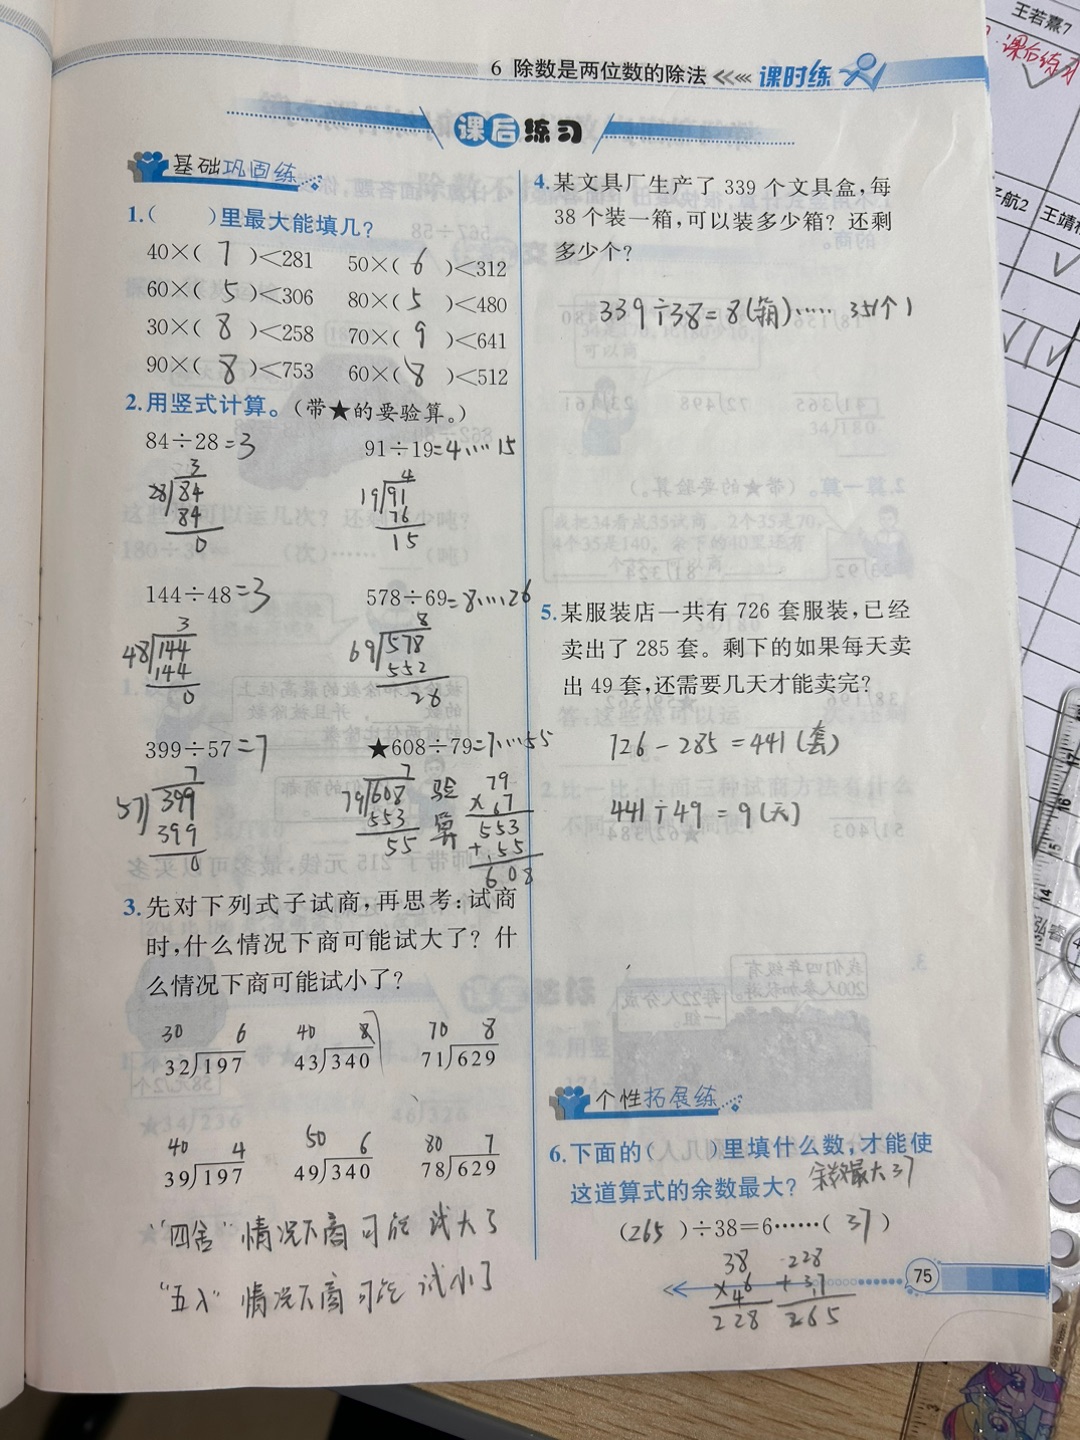 6 除数是两位数的除法 课时练
课后练习
基础巩固练
1.( )里最大能填几?
40×( 7 )<281 50×( 6 )<312
60×( 5 )<306 80×( 5 )<480
30×( 8 )<258 70×( 9 )<641
90×( 8 )<753 60×( 8 )<512
2.用竖式计算。(带★的要验算。)
84÷28=3 91÷19=4……15
3 4
28 84 19 91
84 76
0 15
144÷48=3 578÷69=8……26
3 8
48 144 69 578
144 552
0 26
399÷57=7 ★608÷79=7……55
7 7 验算 79
57 399 79 608 ×67
399 553 553
0 55 +55
608
3.先对下列式子试商,再思考:试商
时,什么情况下商可能试大了?什
么情况下商可能试小了?
30 6 40 8 70 8
32 197 43 340 71 629
40 4 50 6 80 7
39 197 49 340 78 629
"四舍"情况下商可能试大了
"五入"情况下商可能试小了
4.某文具厂生产了 339 个文具盒,每
38 个装一箱,可以装多少箱?还剩
多少个?
339÷38=8(箱)……35(个)
5.某服装店一共有 726 套服装,已经
卖出了 285 套。剩下的如果每天卖
出 49 套,还需要几天才能卖完?
726-285=441(套)
441÷49=9(天)
个性拓展练
6.下面的( )里填什么数,才能使
这道算式的余数最大? 余数最大37
(265)÷38=6……( 37 )
38 228
×6 +37
4
228 265
75
王若熹7
课后练习
子航2